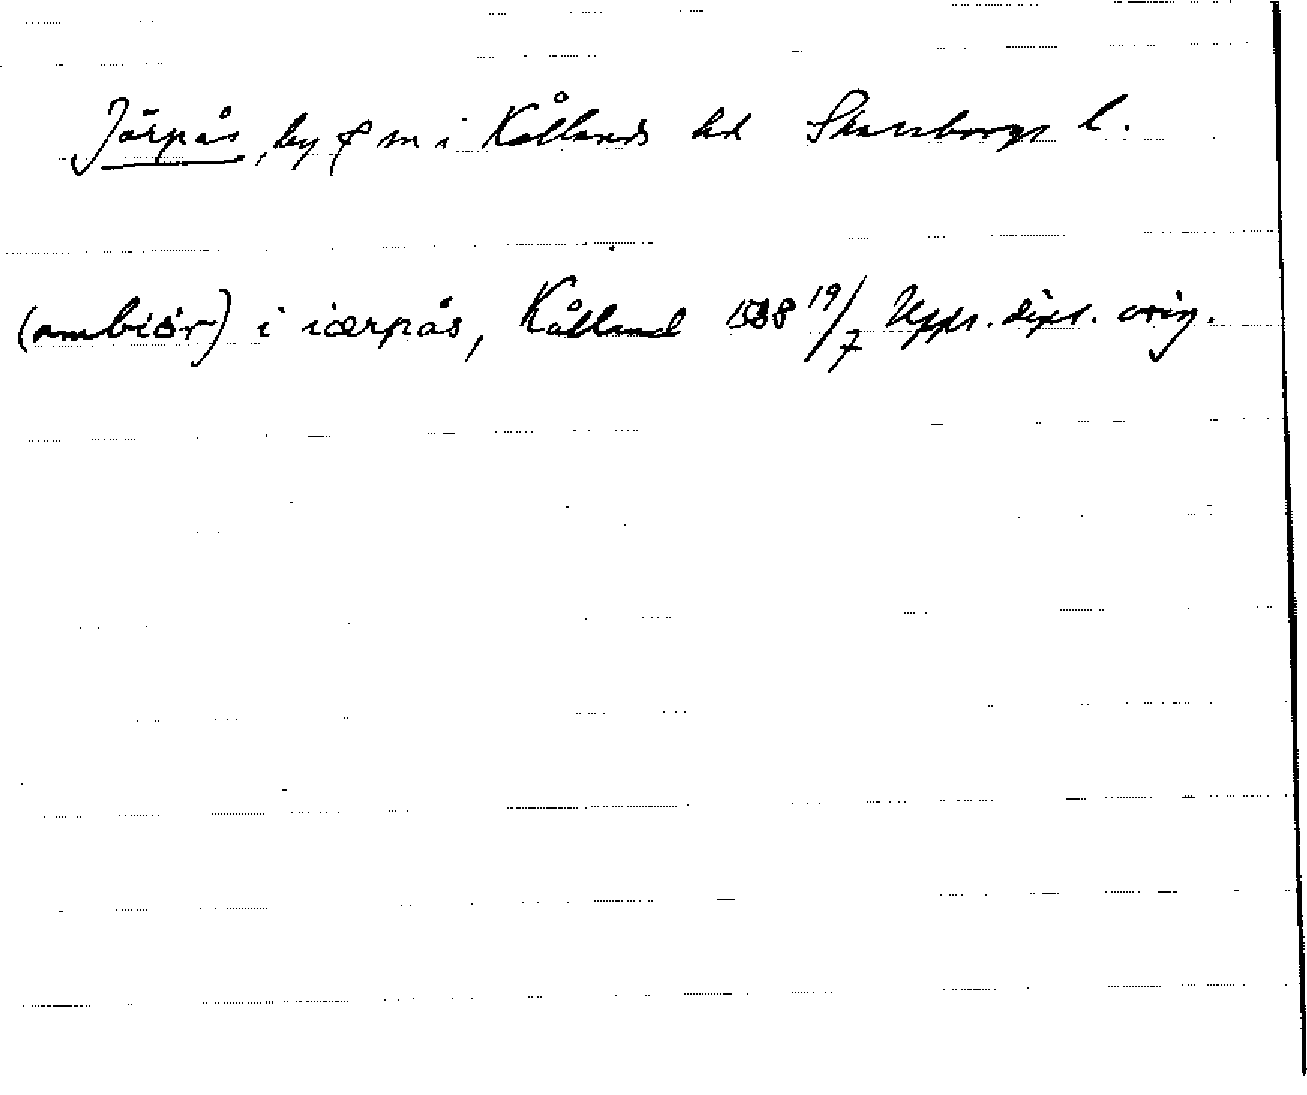 Järpås, by o sn i Kållands hd Skaraborgs l.
(ambiör) i iærpås, Kålland 1538 19/7 Upps. dipl. orig.